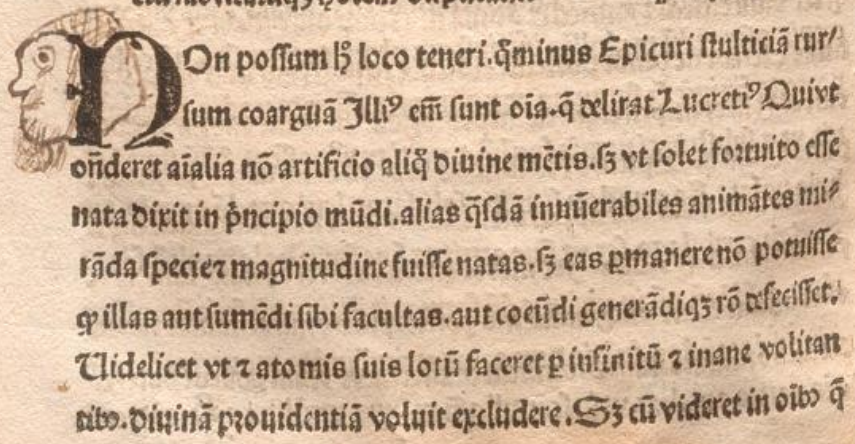 NOn possum hͦ loco teneri.q̄minus Epicuri stulticiā rur/
sum coarguā Illiꝰ em̄ sunt oīa.q̄ delirat Lucretiꝰ Qui vt
on̄deret aīalia nō artificio aliq̄ diuine mētis.sꝫ vt solet foꝛtuito esse
nata dixit in pͥncipio mūdi.alias q̄sdā innūerabiles animātes mi/
rāda specie ⁊ magnitudine fuisse natas.sꝫ eas ꝑmanere nō potuisse
ꝙ illas aut sumēdi sibi facultas.aut coeūdi generādiqꝫ rō defecisset.
Uidelicet vt ⁊ atomis suis locū faceret ꝑ infinitū ⁊ inane volitan
tibꝰ.diuinā pꝛouidentiā voluit excludere.Sꝫ cū videret in oībꝰ q̄